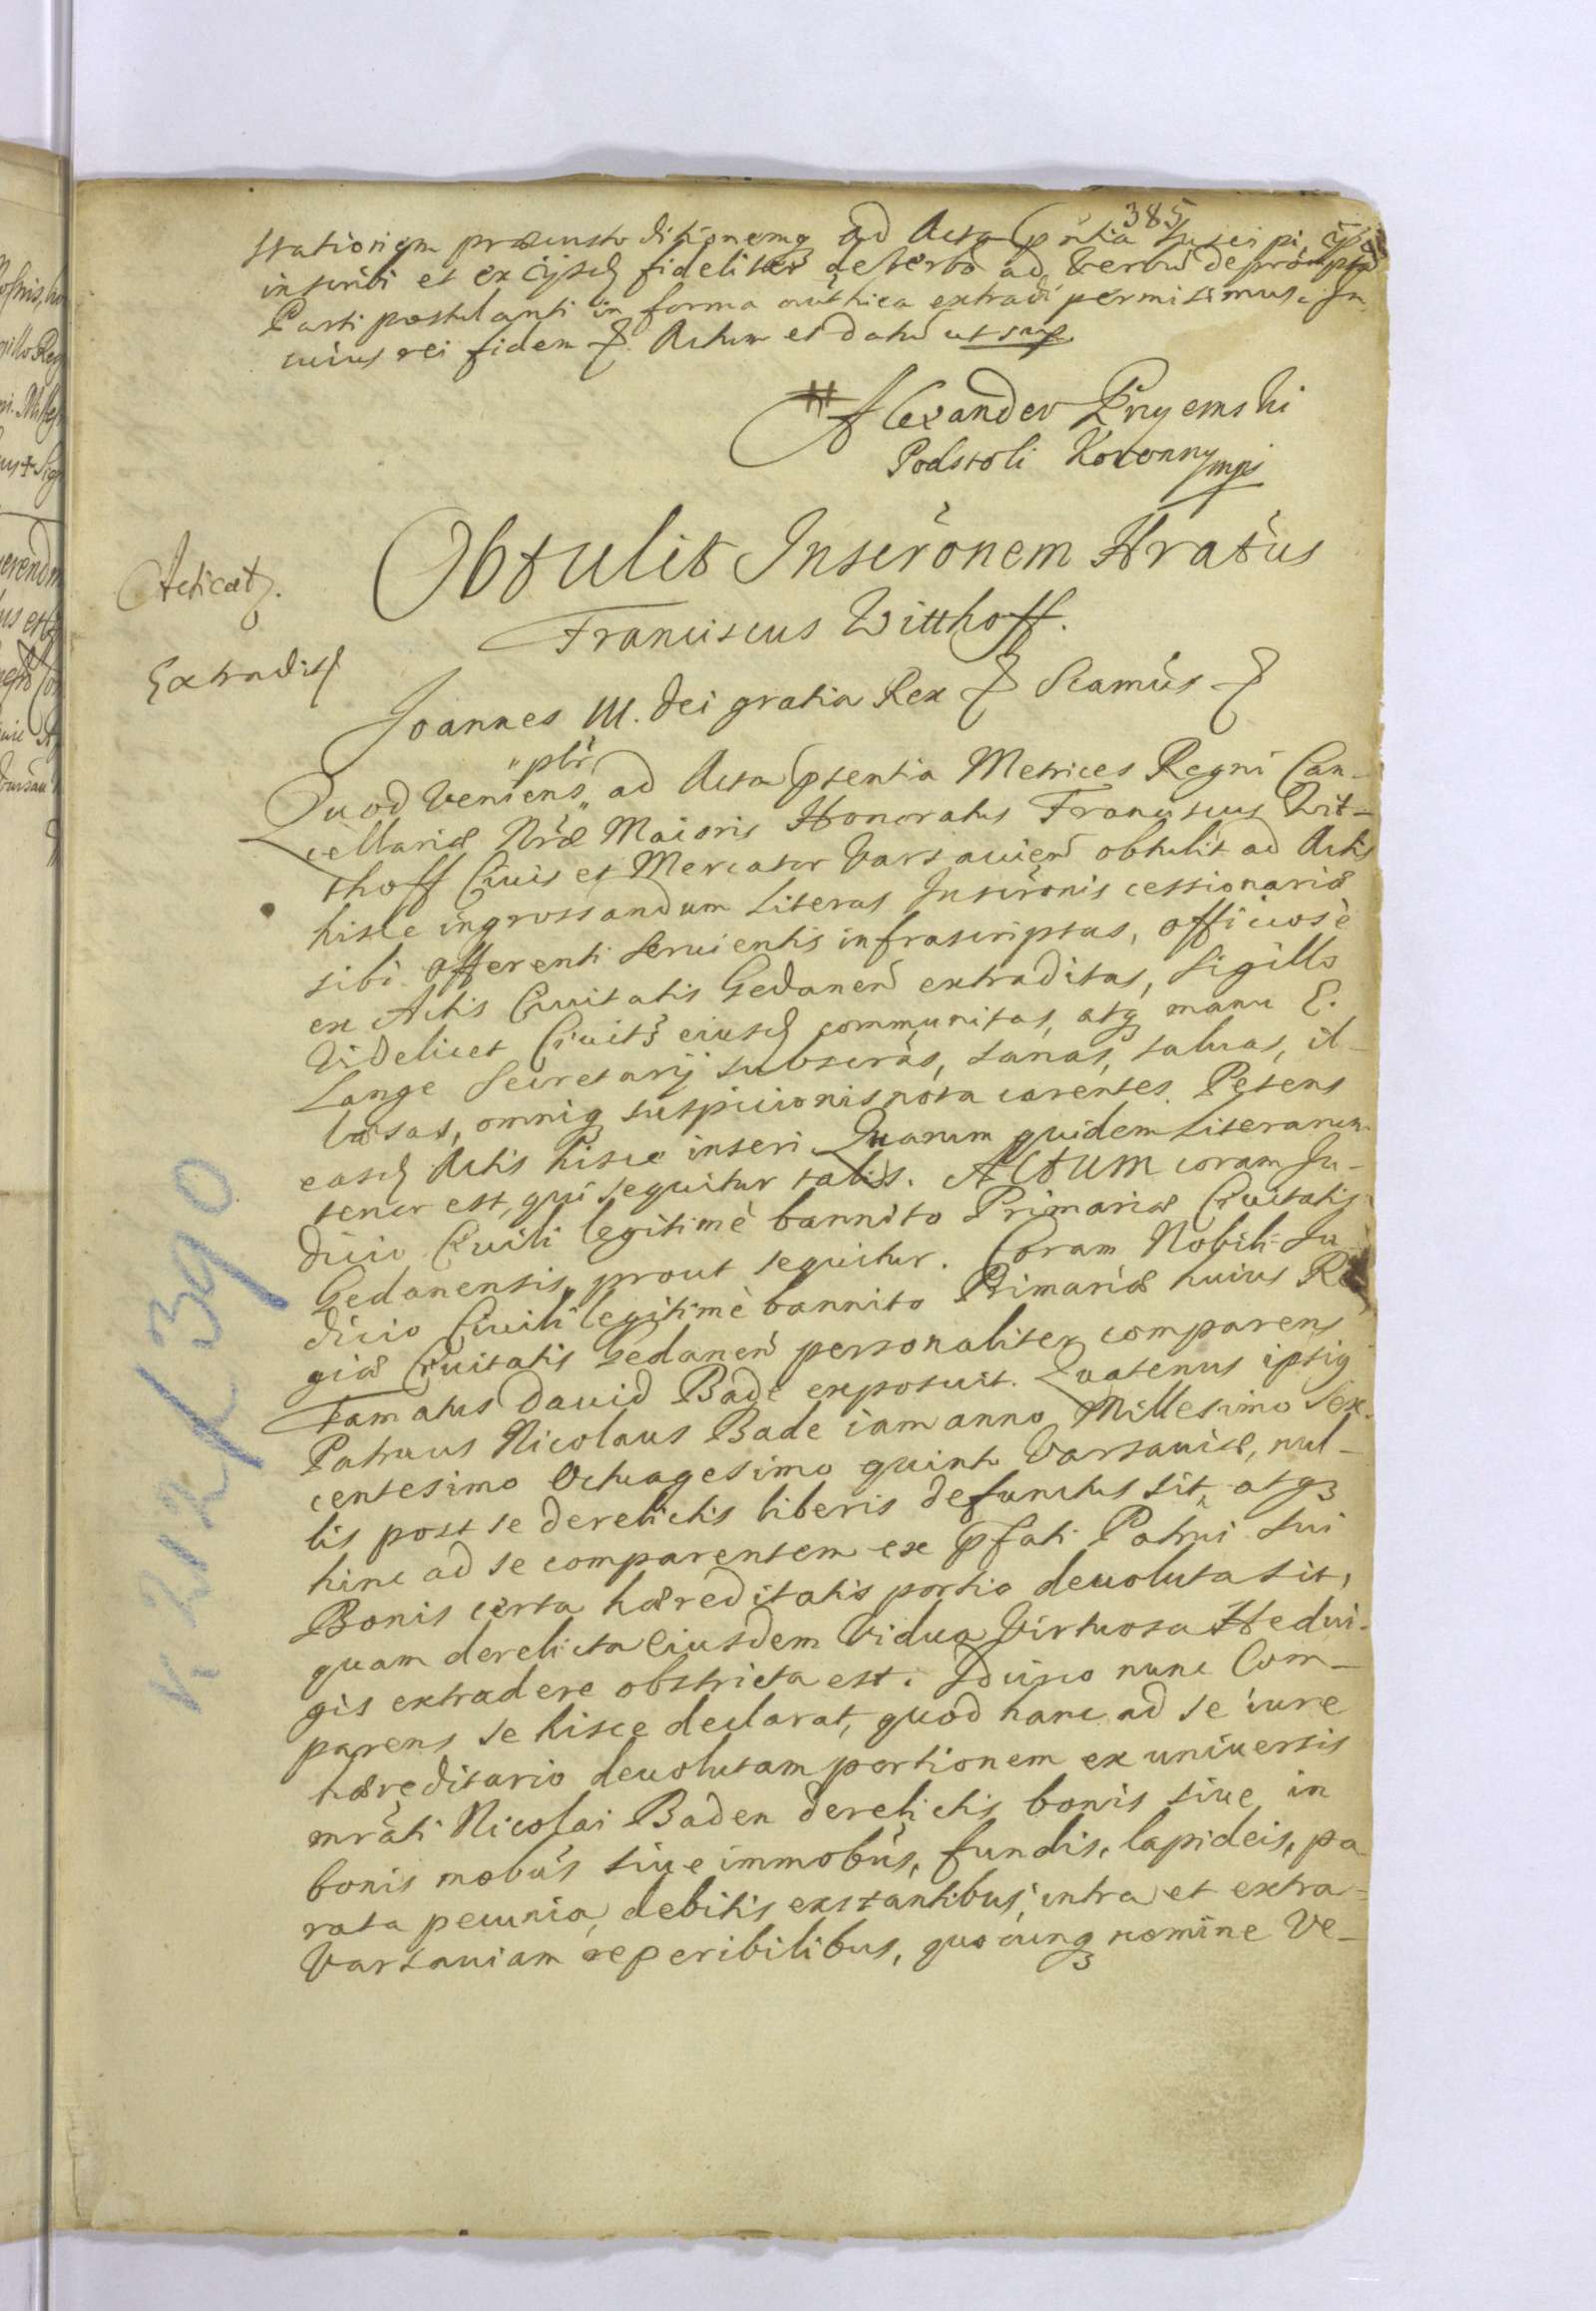 385
stationem præcustoditionemq ad Acta pńtia suscipi, ijsq
inscribi et ex ijsd fideliter de verbo ad verbu depromptu
Parti postulanti in forma authica extradi permisimus. In
cuius rei fidem &. Actum et datu ut sup.
Alexander Pryemski
Podstoli Koronny mpi
Obtulit Inscronem Hratus
Franciscus Witthoff.
Acticat.
Extradit
Joannes III. Dei gratia Rex & Scamus &
Quod veniens "plr" ad Acta pśentia Metrices Regni Can-
cellariæ Nræ Maioris Honoratus Franciscus Wit-
thoff Ciuis et Mercator Varsauień obtulit ad Actis
hisce ingrossandum Literas Inscronis cessionariæ
sibi offerenti seruientis infrascriptas, officiosè
ex Actis Ciuitatis Gedaneń extraditas, Sigillo
Videlicet Ciuits eiusd communitas, atq manu E.
Lange Secretarij subscras, sanas, saluas, il-
læsas, omniq suspicionis nota carentes. Petens
easd Actis hisce inseri Quarum quidem Literarum
tenor est, qui sequitur talis. Actum coram Ju-
dicio Ciuili legitimè bannito Primariæ Ciuitatis
Gedanensis, prout sequitur. Coram Nobili Ju-
dicio Ciuili legitimè bannito Primariæ huius Re
giæ Ciuitatis Gedaneń personaliter comparens
Famatus Dauid Bade exposuit. Quatenus ipsiq
Patruus Nicolaus Bade iam anno Millesimo Sex-
centesimo Octuagesimo quinto Varsauiæ, nul-
lis post se derelictis liberis defunctus sit, atq3
hinc ad se comparentem ex pfati Patrui sui
Bonis certa hæreditatis portio deuoluta sit,
quam derelicta eiusdem Vidua Virtuosa Hedui-
gis extradere obstricta est. Idcirco nunc Com-
parens se hisce declarat, quod hanc ad se iure
hæreditario deuolutam portionem ex uniuersis
mrati Nicolai Baden derelictis bonis siue in
bonis mobus siue immobus, fundis, lapideis, pa
rata pecunia, debitis exstantibus, intra et extra
Varsauiam reperibilibus, quocunq3 nomine Ve-
K 212 / 390